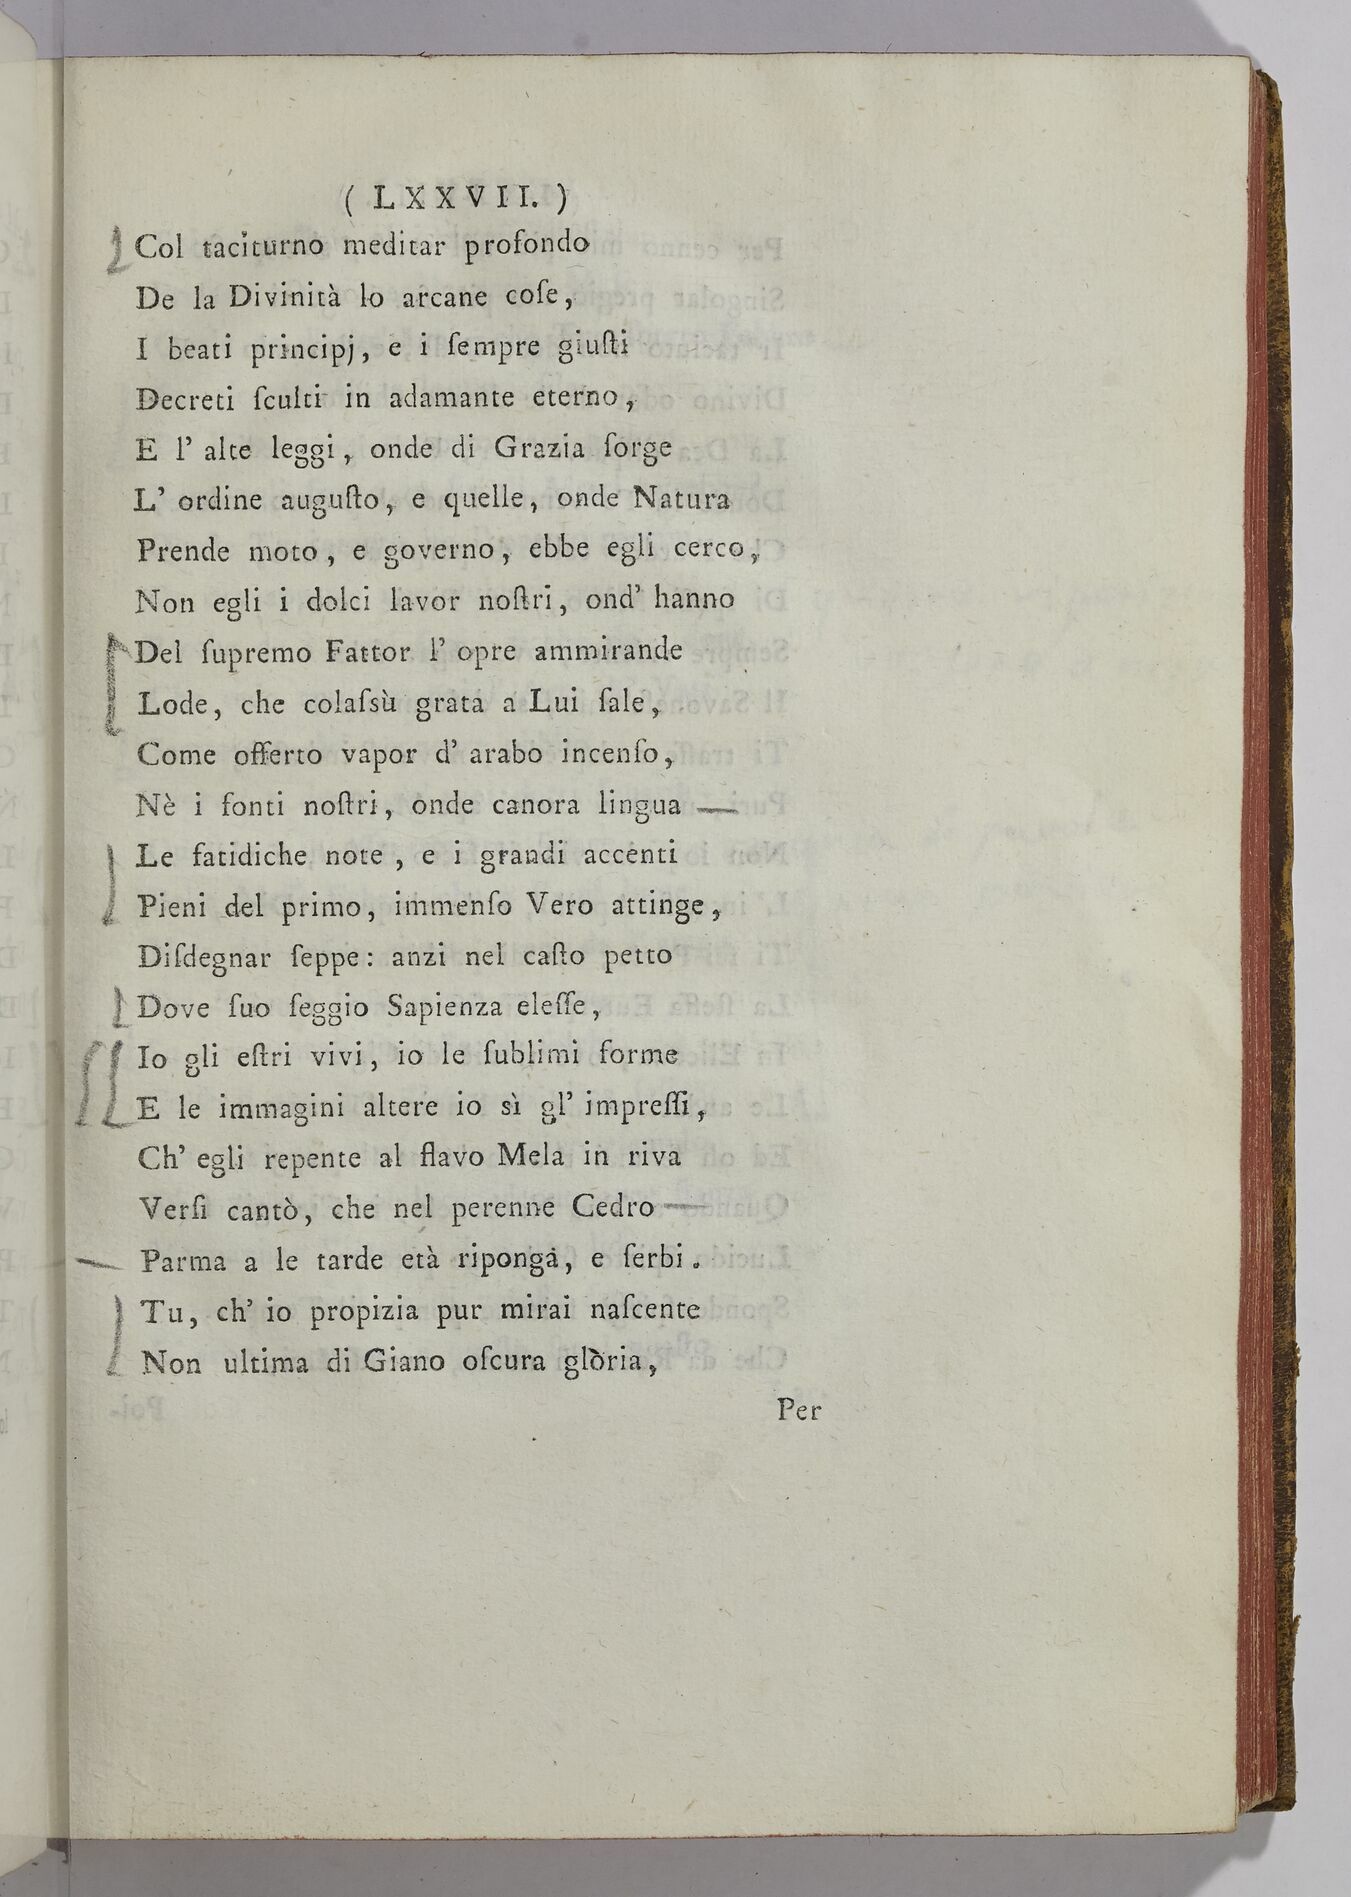 ( LXXVII. )
Col taciturno meditar profondo
De la Divinità lo arcane coſe,
I beati principj, e i ſempre giuſti
Decreti ſculti in adamante eterno,
E l' alte leggi, onde di Grazia ſorge
L' ordine auguſto, e quelle, onde Natura
Prende moto, e governo, ebbe egli cerco,
Non egli i dolci lavor noſtri, ond' hanno
Del ſupremo Fattor l' opre ammirande
Lode, che colaſsù grata a Lui ſale,
Come offerto vapor d' arabo incenſo,
Nè i fonti noſtri, onde canora lingua
Le fatidiche note, e i grandi accenti
Pieni del primo, immenſo Vero attinge,
Diſdegnar ſeppe: anzi nel caſto petto
Dove ſuo ſeggio Sapienza eleſſe,
Io gli eſtri vivi, io le ſublimi forme
E le immagini altere io sì gl' impreſſi,
Ch' egli repente al flavo Mela in riva
Verſi cantò, che nel perenne Cedro
Parma a le tarde età riponga, e ſerbi.
Tu, ch' io propizia pur mirai naſcente
Non ultima di Giano oſcura glòria,
Per